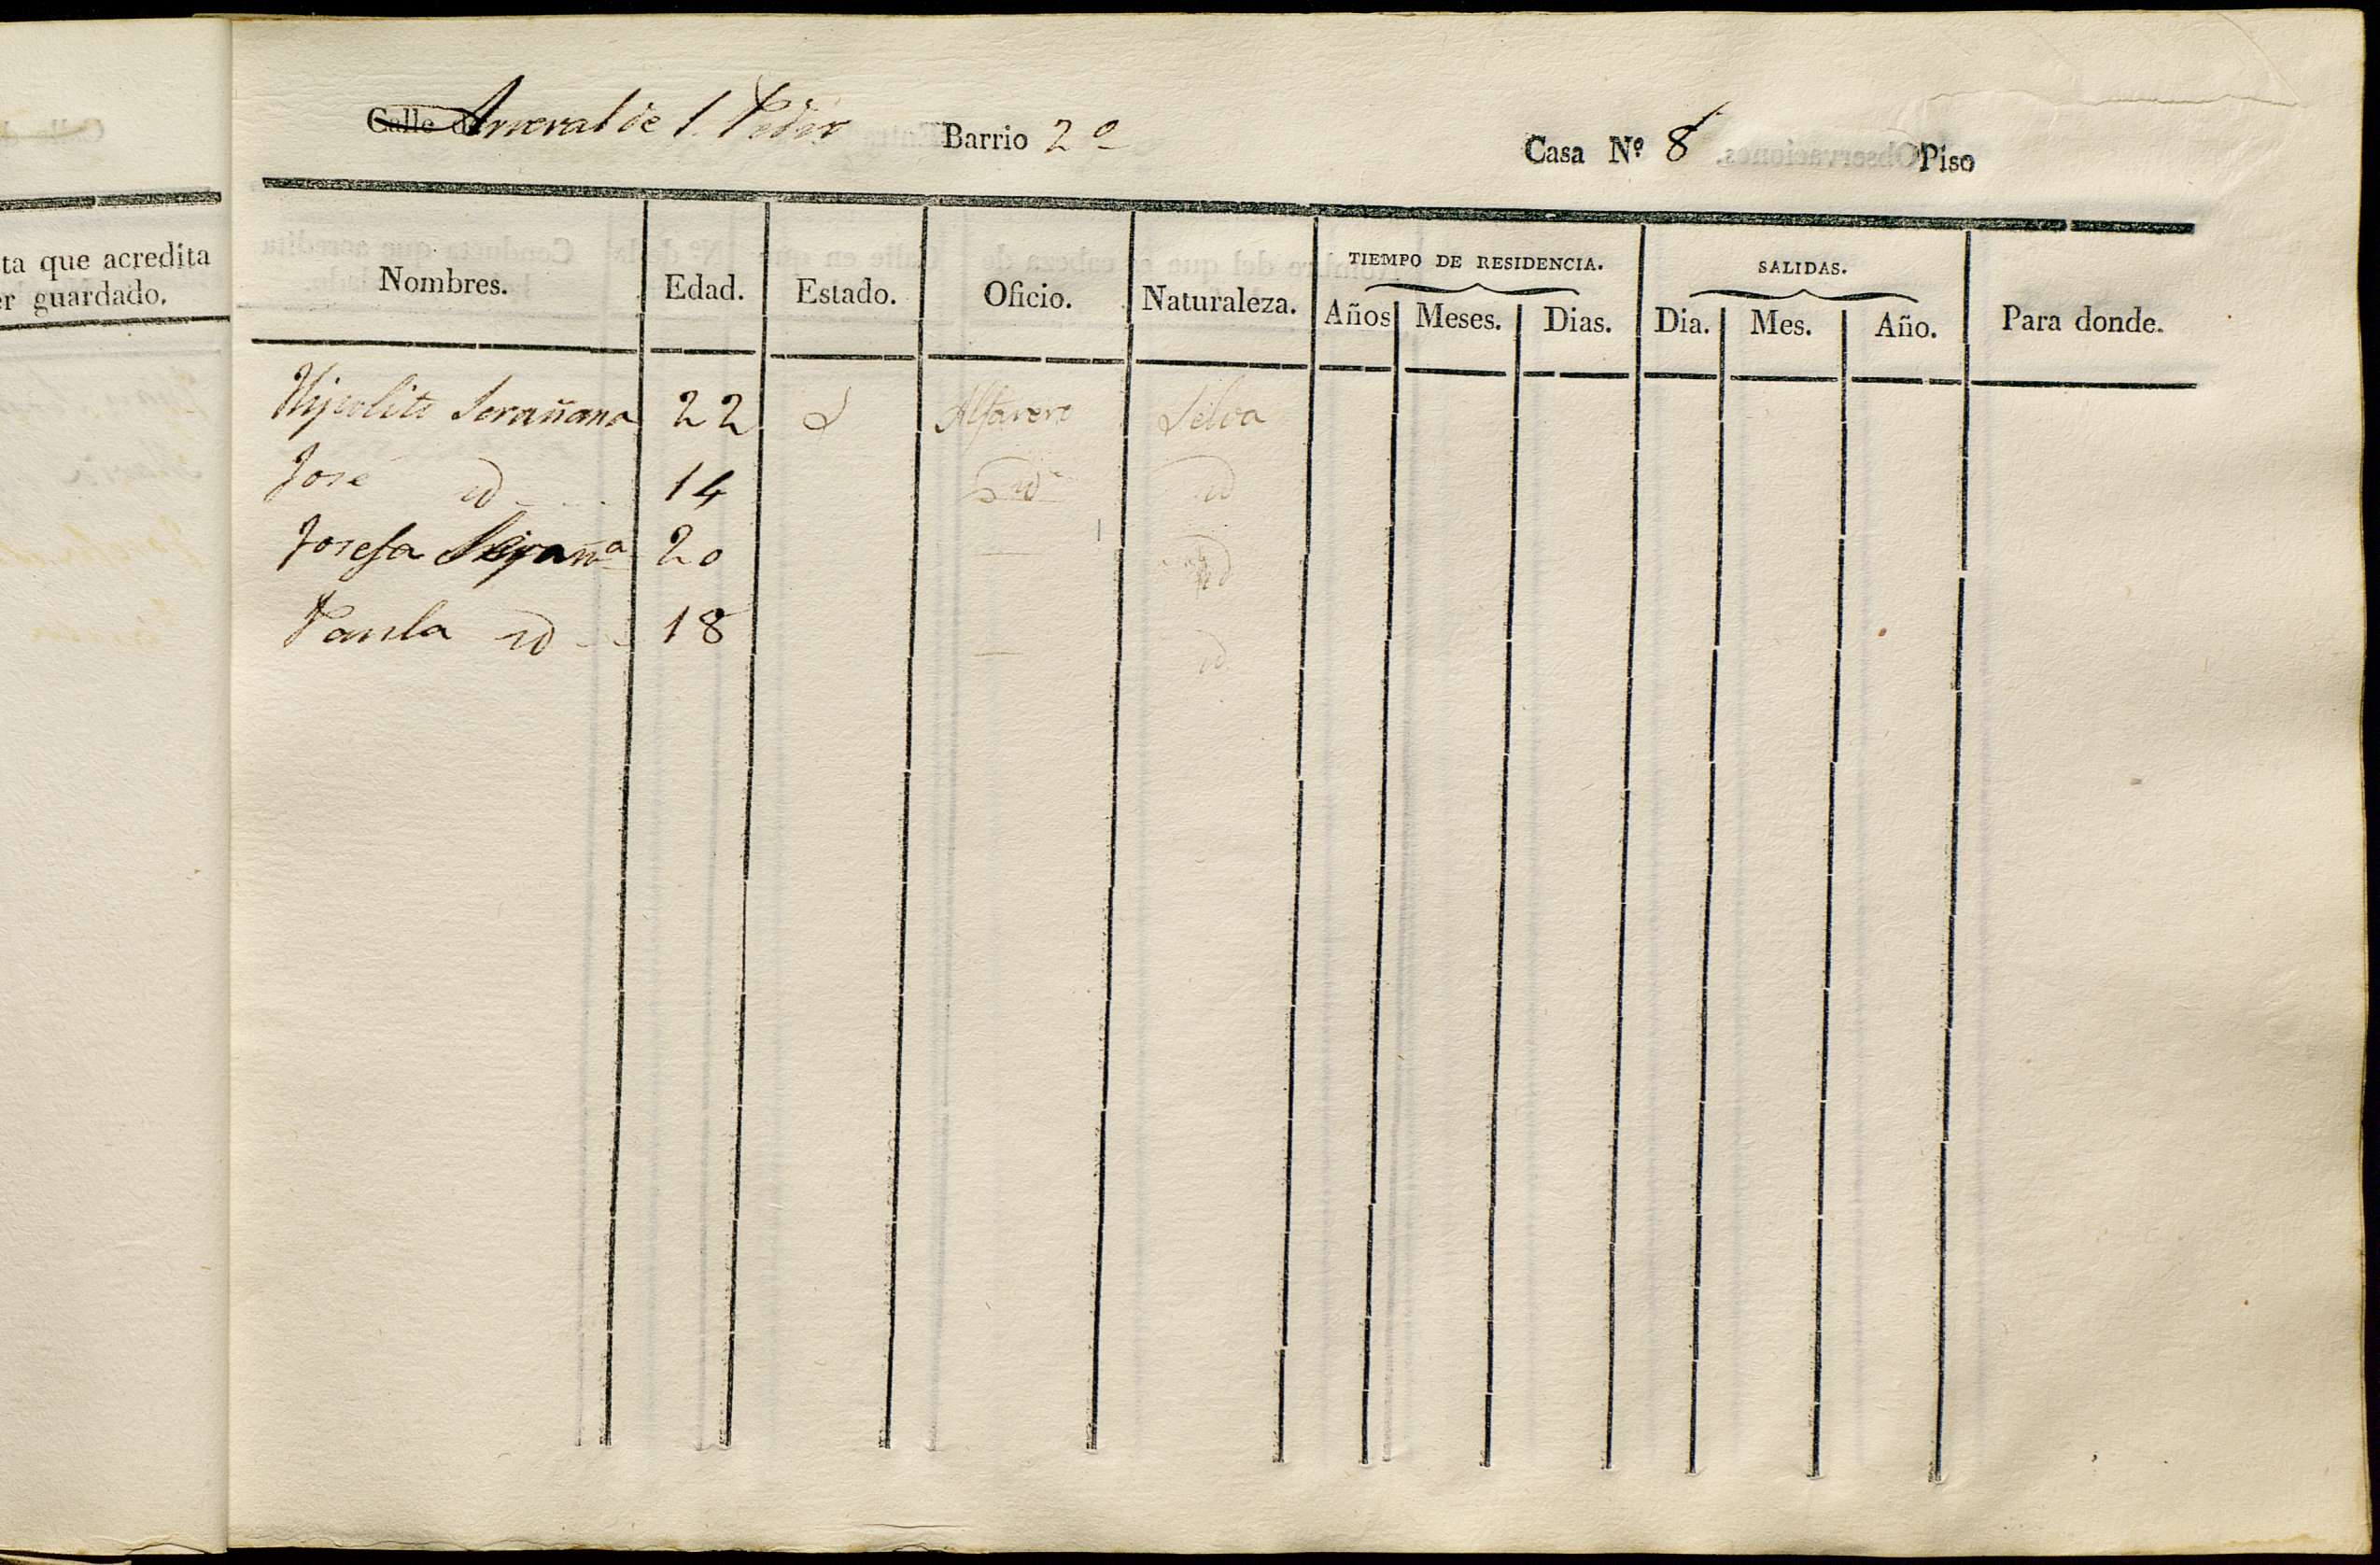 ta que acredita
er guardado.
Calle de Arraval de S. Pedro Barrio 2º Casa Nº 8 Piso
Nombres. Edad. Estado. Oficio. Naturaleza. TIEMPO DE RESIDENCIA. SALIDAS. Para donde.
Años Meses. Dias. Dia. Mes. Año.
Hipolito Serañana 22 S Alfarero Selva
José id 14 id id
Josefa 20 id
Paula id 18 id